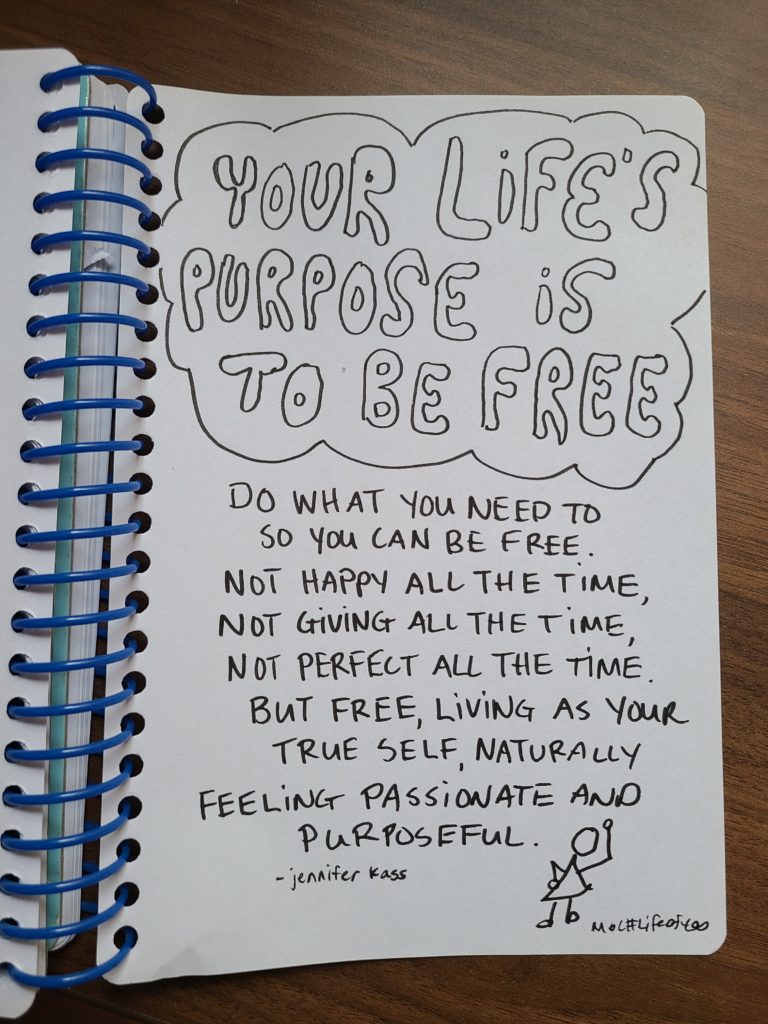 YOUR LiFE'S
PURPOSE iS
TO BE FREE
DO WHAT YOU NEED TO
SO YOU CAN BE FREE.
NOT HAPPY ALL THE TiME,
NOT GIVING ALL THE TiME,
NOT PERFECT ALL THE TiME.
BUT FREE, LiViNG AS YOUR
TRUE SELF, NATURALLY
FEELiNG PASSIONATE AND
PURPOSEFUL.
- jennifer kass